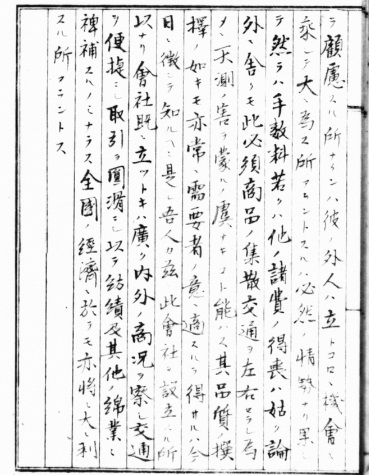 ラ顧慮スル所ナクンハ彼ノ外人ハ立トコロニ機會ニ
乘シテ大ニ為ス所アラントスルハ必然ノ情勢ナリ果シ
テ然ラハ手数料若クハ他ノ諸費ノ得喪ハ姑ク論
外ニ舎クモ此必須商品ノ集散交通ヲ左右セラレ為
メニ不測ノ害ヲ蒙ルノ虞ナキコト能ハス其品質撰
擇ノ如キモ亦常ニ需要者ノ意ニ適スルヲ得サルハ今
日ニ徴シテ知ルヘシ是レ吾人カ茲ニ此會社ヲ設立スル所
以ナリ會社既ニ立ツトキハ廣ク内外ノ商况ヲ察シ交通
ヲ便捷ニシ取引ヲ圓滑ニシ以テ紡績及其他綿業ニ
裨補スルノミナラス全國ノ經濟ニ於テモ亦將ニ大ニ利
スル所アラントス